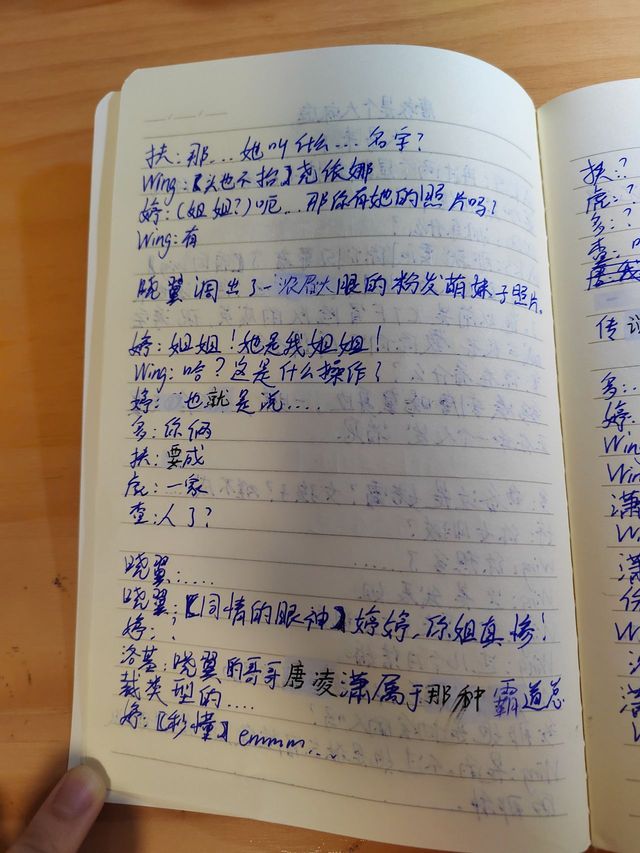 扶：那....她叫什么....名字？
Wing：【头也不抬】尧依娜
婷：(姐姐？)呃....那你有她的照片吗？
Wing：有
晓翼调出了一浓眉大眼的粉发萌妹子照片。
婷：姐姐！她是我姐姐！
Wing：哈？这是什么操作？
婷：也就是说....
多：你俩
扶：要成
虎：一家
查：人了？
晓翼：.....
晓翼：【同情的眼神】婷婷，你姐真惨！
婷：？
洛基：晓翼的哥哥唐凌潇属于那种霸道总
裁类型的....
婷：【秒懂】emmm....
扶：？
虎：？
多：？
查：
传说
多：
婷：
Win
Win
潇
W
W
你
W
W